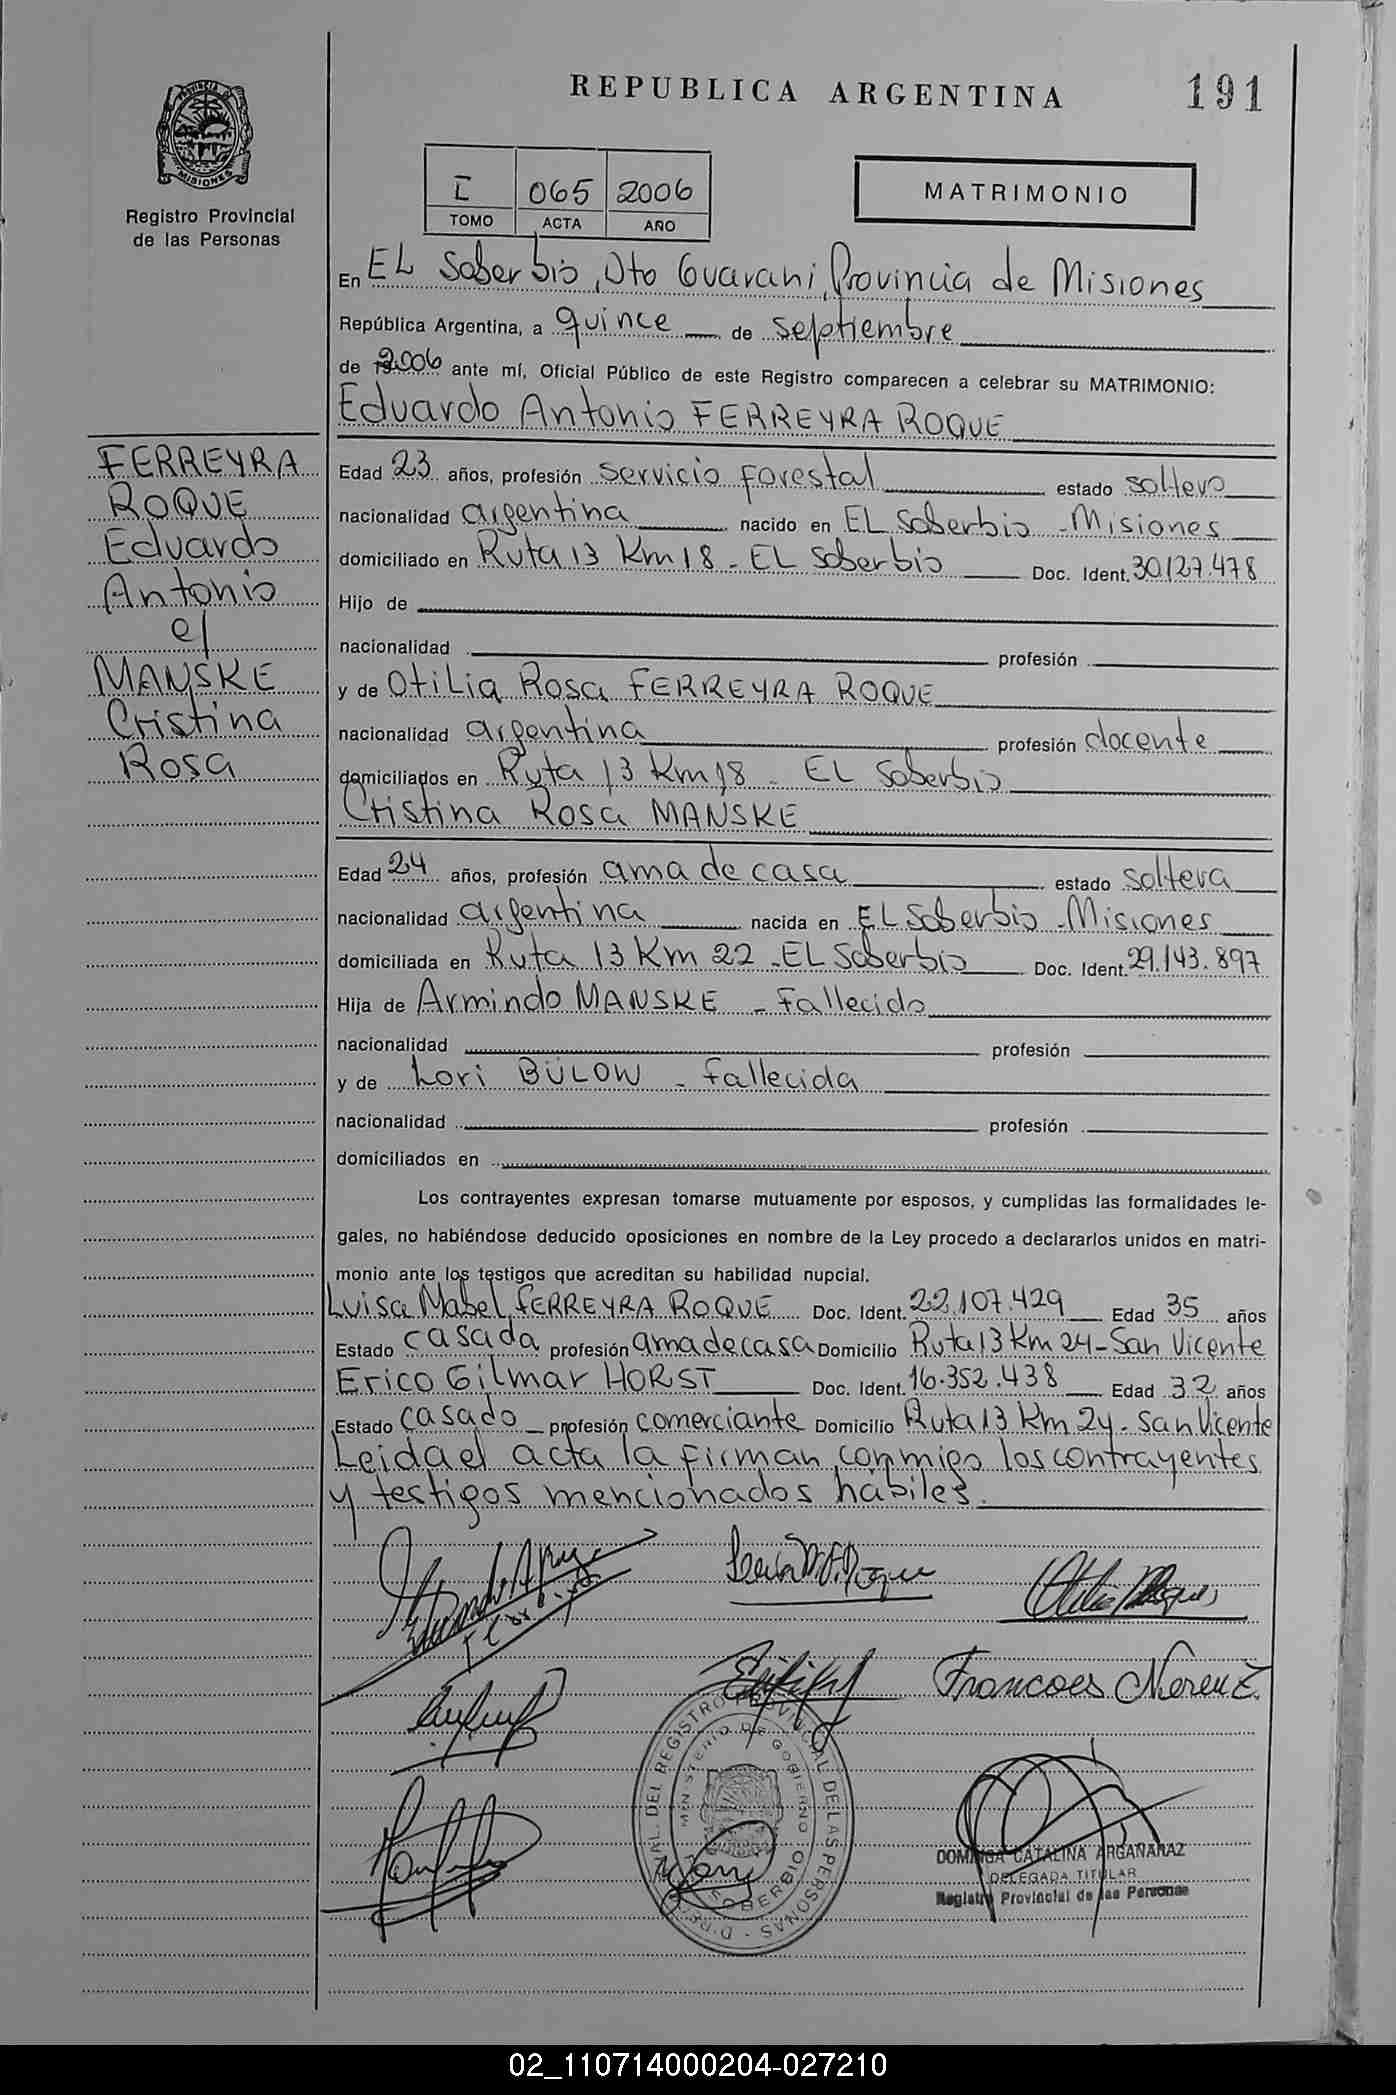 REPUBLICA ARGENTINA
191
PROVINCIA DE MISIONES
Registro Provincial
de las Personas
I 065 2006
TOMO ACTA AÑO
MATRIMONIO
En EL Soberbio, Dto Guarani, Provincia de Misiones
República Argentina, a quince de septiembre
de 2006 ante mí, Oficial Público de este Registro comparecen a celebrar su MATRIMONIO:
Eduardo Antonio FERREYRA ROQUE
FERREYRA
ROQUE
Eduardo
Antonio
c/
MANSKE
Cristina
Rosa
Edad 23 años, profesión servicio forestal estado soltero
nacionalidad argentina nacido en EL Soberbio - Misiones
domiciliado en Ruta 13 Km 18 - EL Soberbio Doc. Ident. 30.127.478
Hijo de
nacionalidad profesión
y de Otilia Rosa FERREYRA ROQUE
nacionalidad argentina profesión docente
domiciliados en Ruta 13 Km 18 - EL Soberbio
Cristina Rosa MANSKE
Edad 24 años, profesión ama de casa estado soltera
nacionalidad argentina nacida en EL Soberbio - Misiones
domiciliada en Ruta 13 Km 22 - EL Soberbio Doc. Ident. 29.143.897
Hija de Armindo MANSKE - Fallecido
nacionalidad profesión
y de Lori BÜLOW - Fallecida
nacionalidad profesión
domiciliados en
Los contrayentes expresan tomarse mutuamente por esposos, y cumplidas las formalidades le-
gales, no habiéndose deducido oposiciones en nombre de la Ley procedo a declararlos unidos en matri-
monio ante los testigos que acreditan su habilidad nupcial.
Luisa Mabel FERREYRA ROQUE Doc. Ident. 22.107.429 Edad 35 años
Estado casada profesión ama de casa Domicilio Ruta 13 Km 24 - San Vicente
Erico Gilmar HORST Doc. Ident. 16.352.438 Edad 32 años
Estado casado profesión comerciante Domicilio Ruta 13 Km 24 - San Vicente
Leida el acta la firman conmigo los contrayentes
y testigos mencionados hábiles.
Francoes
DEL REGISTRO PROVINCIAL DE LAS PERSONAS
MINISTERIO DE GOBIERNO
SOBERBIO
DOMINGA CATALINA ARGAÑARAZ
DELEGADA TITULAR
Registro Provincial de las Personas
02_110714000204-027210